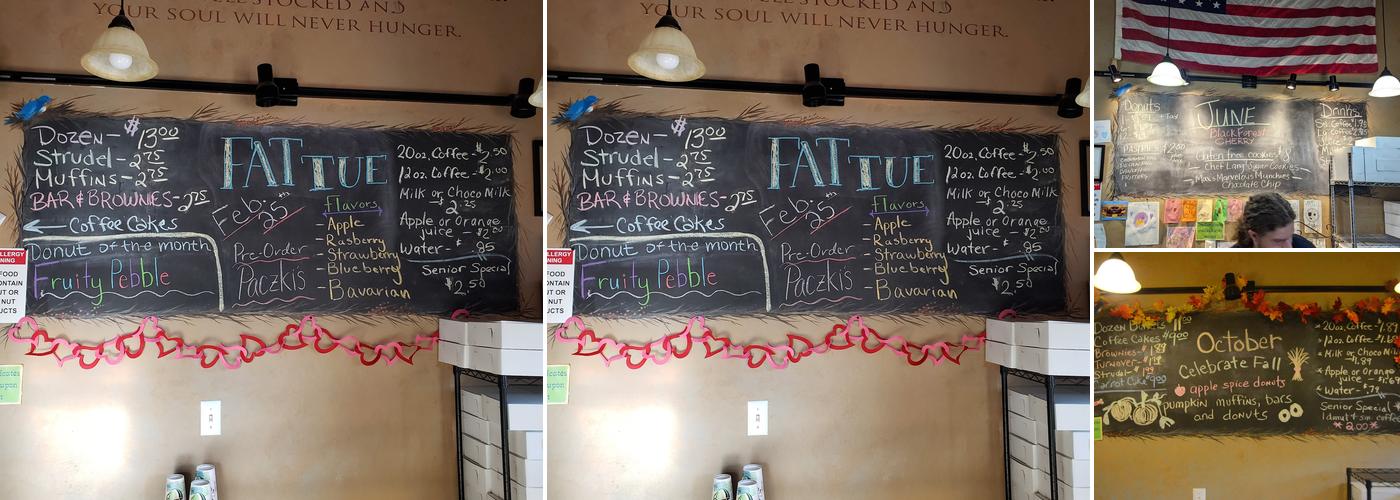 STOCKED AND
YOUR SOUL WILL NEVER HUNGER.
DOZEN- $13.00
STRUDEL- 2.75
MUFFINS- 2.75
BAR & BROWNIES- 2.75
Coffee Cakes
Donut of the month
Fruity Pebble
FAT TUE
Feb. 25
Pre-Order
PACZKIS
Flavors
- Apple
- Rasberry
- Strawberry
- Blueberry
- Bavarian
20oz. Coffee - $2.50
12oz. Coffee - $2.00
Milk or Choco Milk
2.25
Apple or Orange
juice - $2.00
Water - $.95
Senior Special
$2.50
ALLERGY
FOOD
NUT
STOCKED AND
YOUR SOUL WILL NEVER HUNGER.
DOZEN- $13.00
STRUDEL- 2.75
MUFFINS- 2.75
BAR & BROWNIES- 2.75
Coffee Cakes
Donut of the month
Fruity Pebble
FAT TUE
Feb. 25
Pre-Order
PACZKIS
Flavors
- Apple
- Rasberry
- Strawberry
- Blueberry
- Bavarian
20oz. Coffee - $2.50
12oz. Coffee - $2.00
Milk or Choco Milk
2.25
Apple or Orange
juice - $2.00
Water - $.95
Senior Special
$2.50
ALLERGY
FOOD
NUT
Donuts
JUNE
Black Forest
CHERRY
Gluten free cookies
Chocolate Chip
Drinks
October
Celebrate Fall
apple spice donuts
pumpkin muffins, bars
and donuts
Dozen
Coffee Cakes $9.00
Brownies-
Turnover-
Strudel-
Carrot Cake
20oz. Coffee-
12oz. Coffee-
Milk or Choco Milk
Apple or Orange
juice
Water- $.79
Senior Special
1 donut + sm coffee
*2.00*